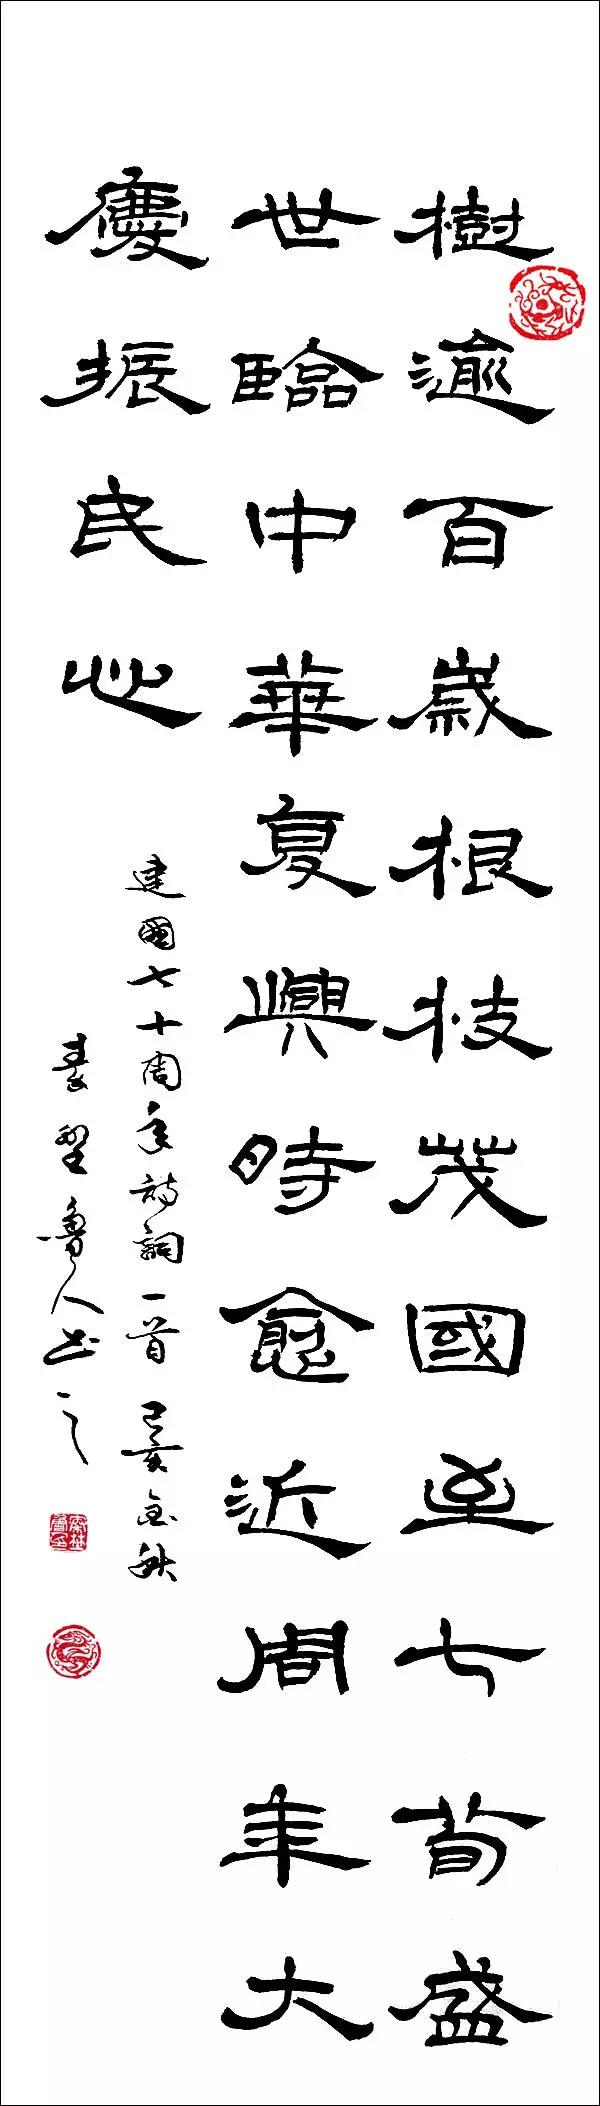 樹逾百歲根枝茂國至七荀盛
世臨中華夏興時愈近周年大
慶振民心
建國七十周年詩詞一首 己亥金秋
魯人书之